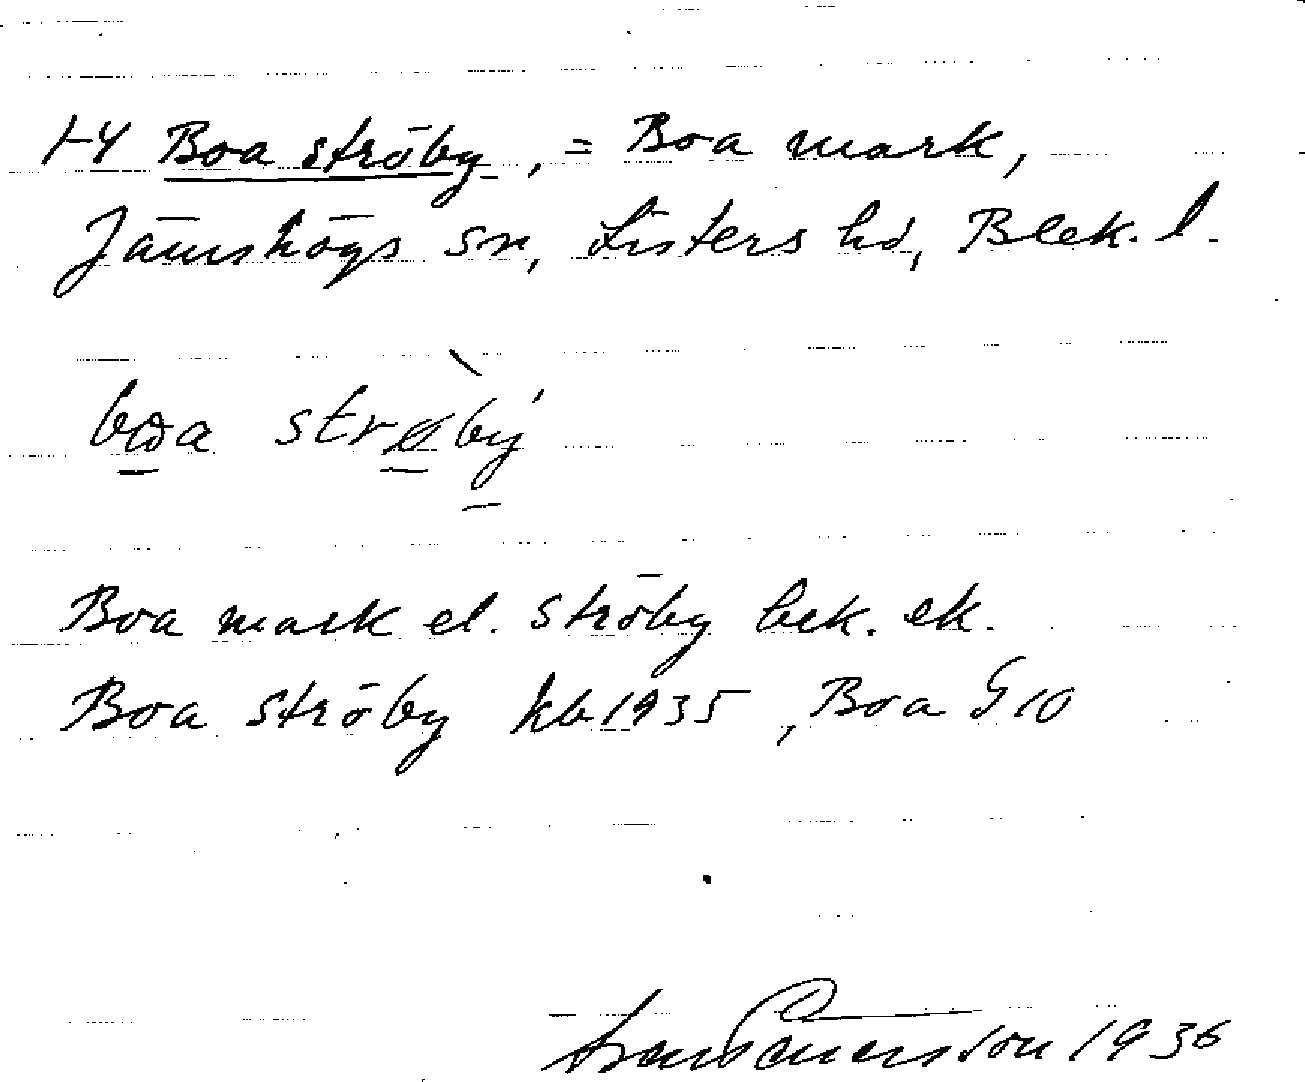 1-4 Boa ströby, = Boa mark,
Jämshögs sn, Listers hd, Blek. l.
boa strøby
Boa mark el. ströby bek. ek.
Boa ströby kb 1935, Boa G 10
1936